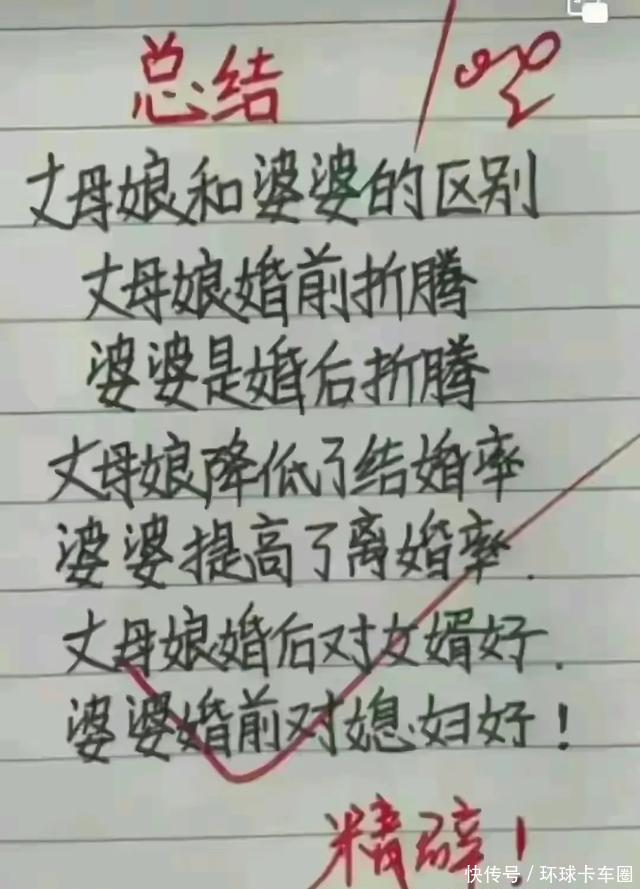 总结
丈母娘和婆婆的区别
丈母娘婚前折腾
婆婆是婚后折腾
丈母娘降低了结婚率
婆婆提高了离婚率.
丈母娘婚后对女婿好.
婆婆婚前对媳妇好!
精辟!
快传号/环球卡车圈